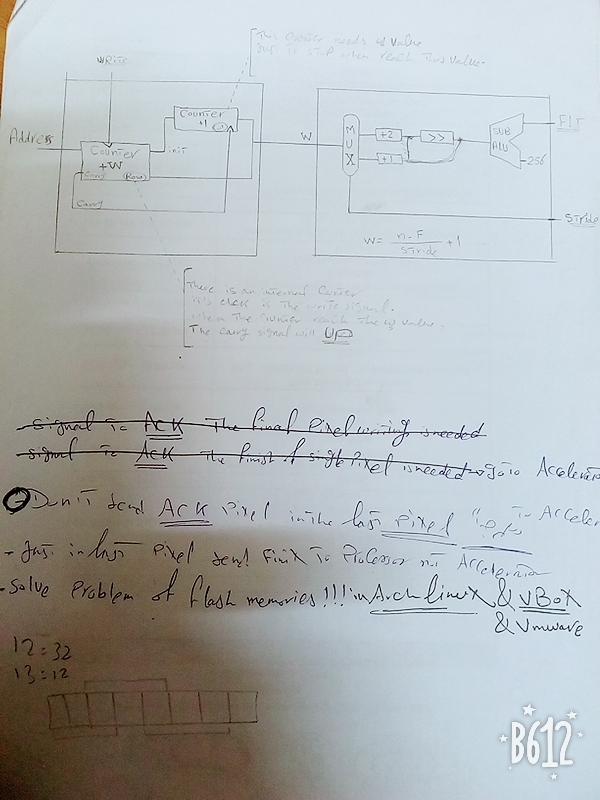 This Counter needs w value
just to stop when reach this value.
write
Address
Counter
+1
Counter
+W
init
Carry
(Row)
Carry
W
MUX
÷2
÷1
>>
SUB
ALU
FLT
256
Stride
W = n-F / Stride + 1
There is an internal Counter
it's clock is the write signal.
when the Counter reach the w value.
The carry signal will UP
signal to Ack The final Pixel writing is needed
signal to Ack The finish of single Pixel is needed → goto Accelerator
Don't send Ack Pixel in the last Pixel to Acceler
- Just in last Pixel send Finix To Processor not Accelerator
- Solve Problem of flash memories!!! in Arch linux & VBox
& Vmware
12:32
13:12
B612